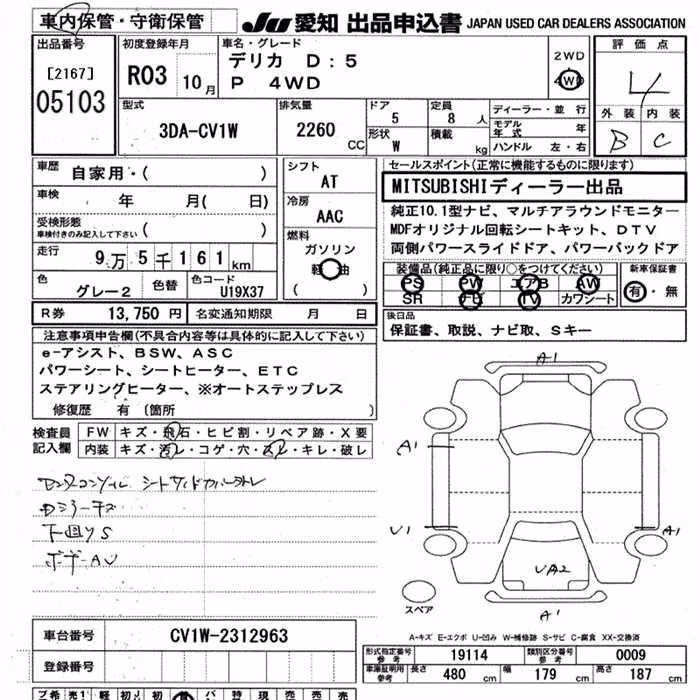 車内保管・守衛保管 JU 愛知 出品申込書 JAPAN USED CAR DEALERS ASSOCIATION
出品番号 [2167] 05103
初度登録年月 R03 10月
車名・グレード デリカ D:5
P 4WD
2WD
4WD
評価点 4
外装 内装
B C
型式 3DA-CV1W
排気量 2260 CC
ドア 5
定員 8 人
形状 W
積載 kg
ディーラー・並行
モデル年式 年
ハンドル 左・右
車歴 自家用・( )
車検 年 月( 日)
受検形態 車検付きのみ記入して下さい ( )
走行 9万5千161km
色 グレー2 色替 色コード U19X37
シフト AT
冷房 AAC
燃料 ガソリン
軽油
( )
セールスポイント(正常に機能するものに限ります)
MITSUBISHIディーラー出品
純正10.1型ナビ、マルチアラウンドモニター
MDFオリジナル回転シートキット、DTV
両側パワースライドドア、パワーバックドア
装備品(純正品に限り○をつけてください)
PS PW エアB AW
SR ナビ TV カワシート
新車保証書 有・無
R券 13,750円 名変通知期限 月 日
後日品
保証書、取説、ナビ取、Sキー
注意事項申告欄(不具合内容等は具体的に記入して下さい)
e-アシスト、BSW、ASC
パワーシート、シートヒーター、ETC
ステアリングヒーター、※オートステップレス
修復歴 有 (箇所 )
検査員記入欄
FW キズ・飛石・ヒビ割・リペア跡・X要
内装 キズ・汚レ・コゲ・穴・スレ・キレ・破レ
下回りS
A1
A1
U1
A1
UA2
A1
スペア
A-キズ E-エクボ U-凹み W-補修跡 S-サビ C-腐食 XX-交換済
車台番号 CV1W-2312963
登録番号
型式指定番号 参考 19114 類別区分番号 参考 0009
車庫証明用参考 長さ 480 cm 幅 179 cm 高さ 187 cm